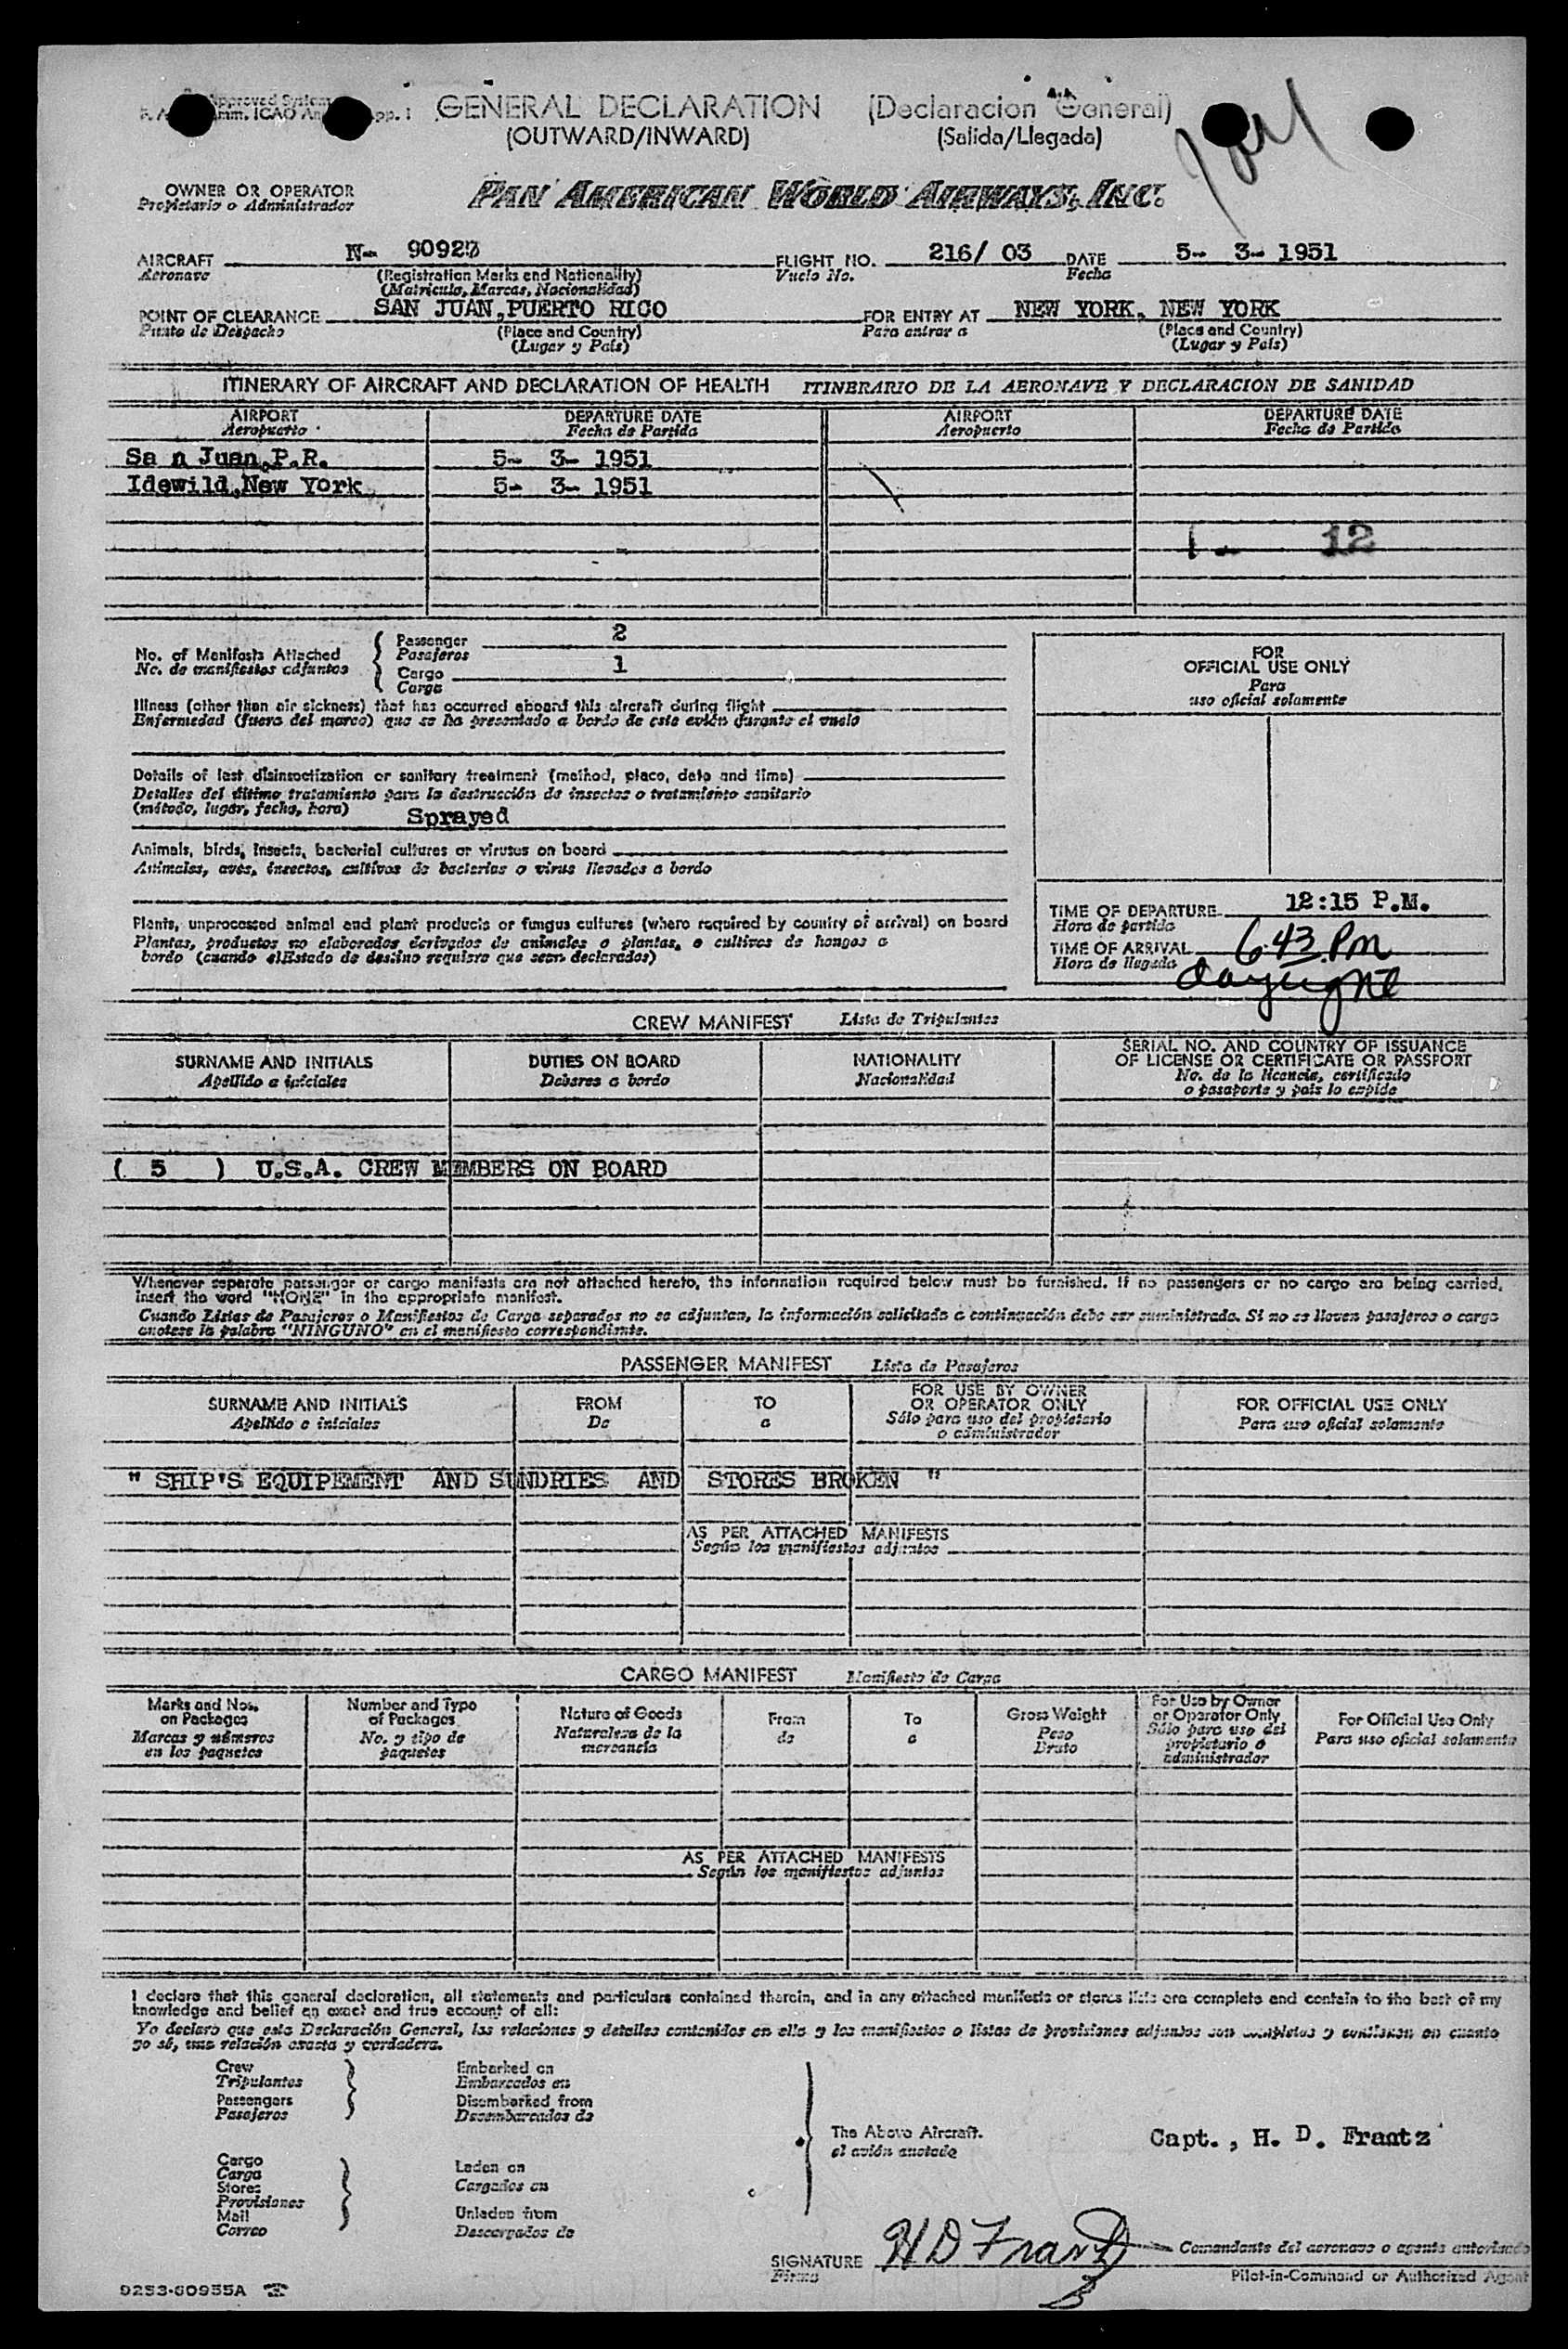 Approved System
GENERAL DECLARATION (Declaracion General)
(OUTWARD/INWARD) (Salida/Llegada)
OWNER OR OPERATOR
Propietario o Administrador
PAN AMERICAN WORLD AIRWAYS, INC.
AIRCRAFT N- 90923 FLIGHT NO. 216/ 03 DATE 5- 3- 1951
Aeronave (Registration Marks and Nationality) Vuelo No. Fecha
(Matricula, Marcas, Nacionalidad)
POINT OF CLEARANCE SAN JUAN, PUERTO RICO FOR ENTRY AT NEW YORK, NEW YORK
Punto de Despacho (Place and Country) Para entrar a (Place and Country)
(Lugar y País) (Lugar y País)
ITINERARY OF AIRCRAFT AND DECLARATION OF HEALTH ITINERARIO DE LA AERONAVE Y DECLARACION DE SANIDAD
AIRPORT DEPARTURE DATE AIRPORT DEPARTURE DATE
Aeropuerto Fecha de Partida Aeropuerto Fecha de Partida
Sa n Juan,P.R. 5- 3- 1951
Idewild,New York 5- 3- 1951
1 - 12
No. of Manifests Attached Passenger 2
No. de manifiestos adjuntos Pasajeros
Cargo 1
Carga
FOR
OFFICIAL USE ONLY
Para
uso oficial solamente
Illness (other than air sickness) that has occurred aboard this aircraft during flight
Enfermedad (fuera del mareo) que se ha presentado a bordo de este avión durante el vuelo
Details of last disinsectization or sanitary treatment (method, place, date and time)
Detalles del último tratamiento para la destrucción de insectos o tratamiento sanitario
(método, lugar, fecha, hora) Sprayed
Animals, birds, insects, bacterial cultures or viruses on board
Animales, aves, insectos, cultivos de bacterias o virus llevados a bordo
Plants, unprocessed animal and plant products or fungus cultures (where required by country of arrival) on board
Plantas, productos no elaborados derivados de animales o plantas, o cultivos de hongos a
bordo (cuando el Estado de destino requiera que sean declarados)
TIME OF DEPARTURE 12:15 P.M.
Hora de partida
TIME OF ARRIVAL 6:43 Pm
Hora de llegada daylight
CREW MANIFEST Lista de Tripulantes
SURNAME AND INITIALS DUTIES ON BOARD NATIONALITY SERIAL NO. AND COUNTRY OF ISSUANCE
OF LICENSE OR CERTIFICATE OR PASSPORT
Apellido a iniciales Deberes a bordo Nacionalidad No. de la licencia, certificado
o pasaporte y pais lo expide
( 5 ) U.S.A. CREW MEMBERS ON BOARD
Whenever separate passenger or cargo manifests are not attached hereto, the information required below must be furnished. If no passengers or no cargo are being carried,
insert the word "NONE" in the appropriate manifest.
Cuando Listas de Pasajeros o Manifiestos de Carga separados no se adjuntan, la información solicitada a continuación debe ser suministrada. Si no se llevan pasajeros o carga
anotese la palabra "NINGUNO" en el manifiesto correspondiente.
PASSENGER MANIFEST Lista de Pasajeros
SURNAME AND INITIALS FROM TO FOR USE BY OWNER
OR OPERATOR ONLY FOR OFFICIAL USE ONLY
Apellido e iniciales De a Sólo para uso del propietario
o administrador Para uso oficial solamente
" SHIP'S EQUIPEMENT AND SUNDRIES AND STORES BROKEN "
AS PER ATTACHED MANIFESTS
Según los manifiestos adjuntos
CARGO MANIFEST Manifiesto de Carga
Marks and Nos. on Packages Number and Type of Packages Nature of Goods From To Gross Weight For Use by Owner or Operator Only For Official Use Only
Marcas y números en los paquetes No. y tipo de paquetes Naturaleza de la mercancía de a Peso Bruto Sólo para uso del propietario ó administrador Para uso oficial solamente
AS PER ATTACHED MANIFESTS
Según los manifiestos adjuntos
I declare that this general declaration, all statements and particulars contained therein, and in any attached manifests or stores lists are complete and contain to the best of my
knowledge and belief an exact and true account of all:
Yo declaro que esta Declaración General, las relaciones y detalles contenidos en ella y los manifiestos o listas de provisiones adjuntos son completos y contienen en cuanto
yo sé, una relación exacta y verdadera.
Crew Embarked on
Tripulantes Embarcados en
Passengers Disembarked from
Pasajeros Desembarcados de
The Above Aircraft.
el avión anotado
Capt., H. D. Frantz
Cargo
Carga Laden on
Stores Cargados en
Provisiones
Mail Unladen from
Correo Descargados de
SIGNATURE H D Frantz Comandante del aeronave o agente autorizado
Firma Pilot-in-Command or Authorized Agent
9253-60955A